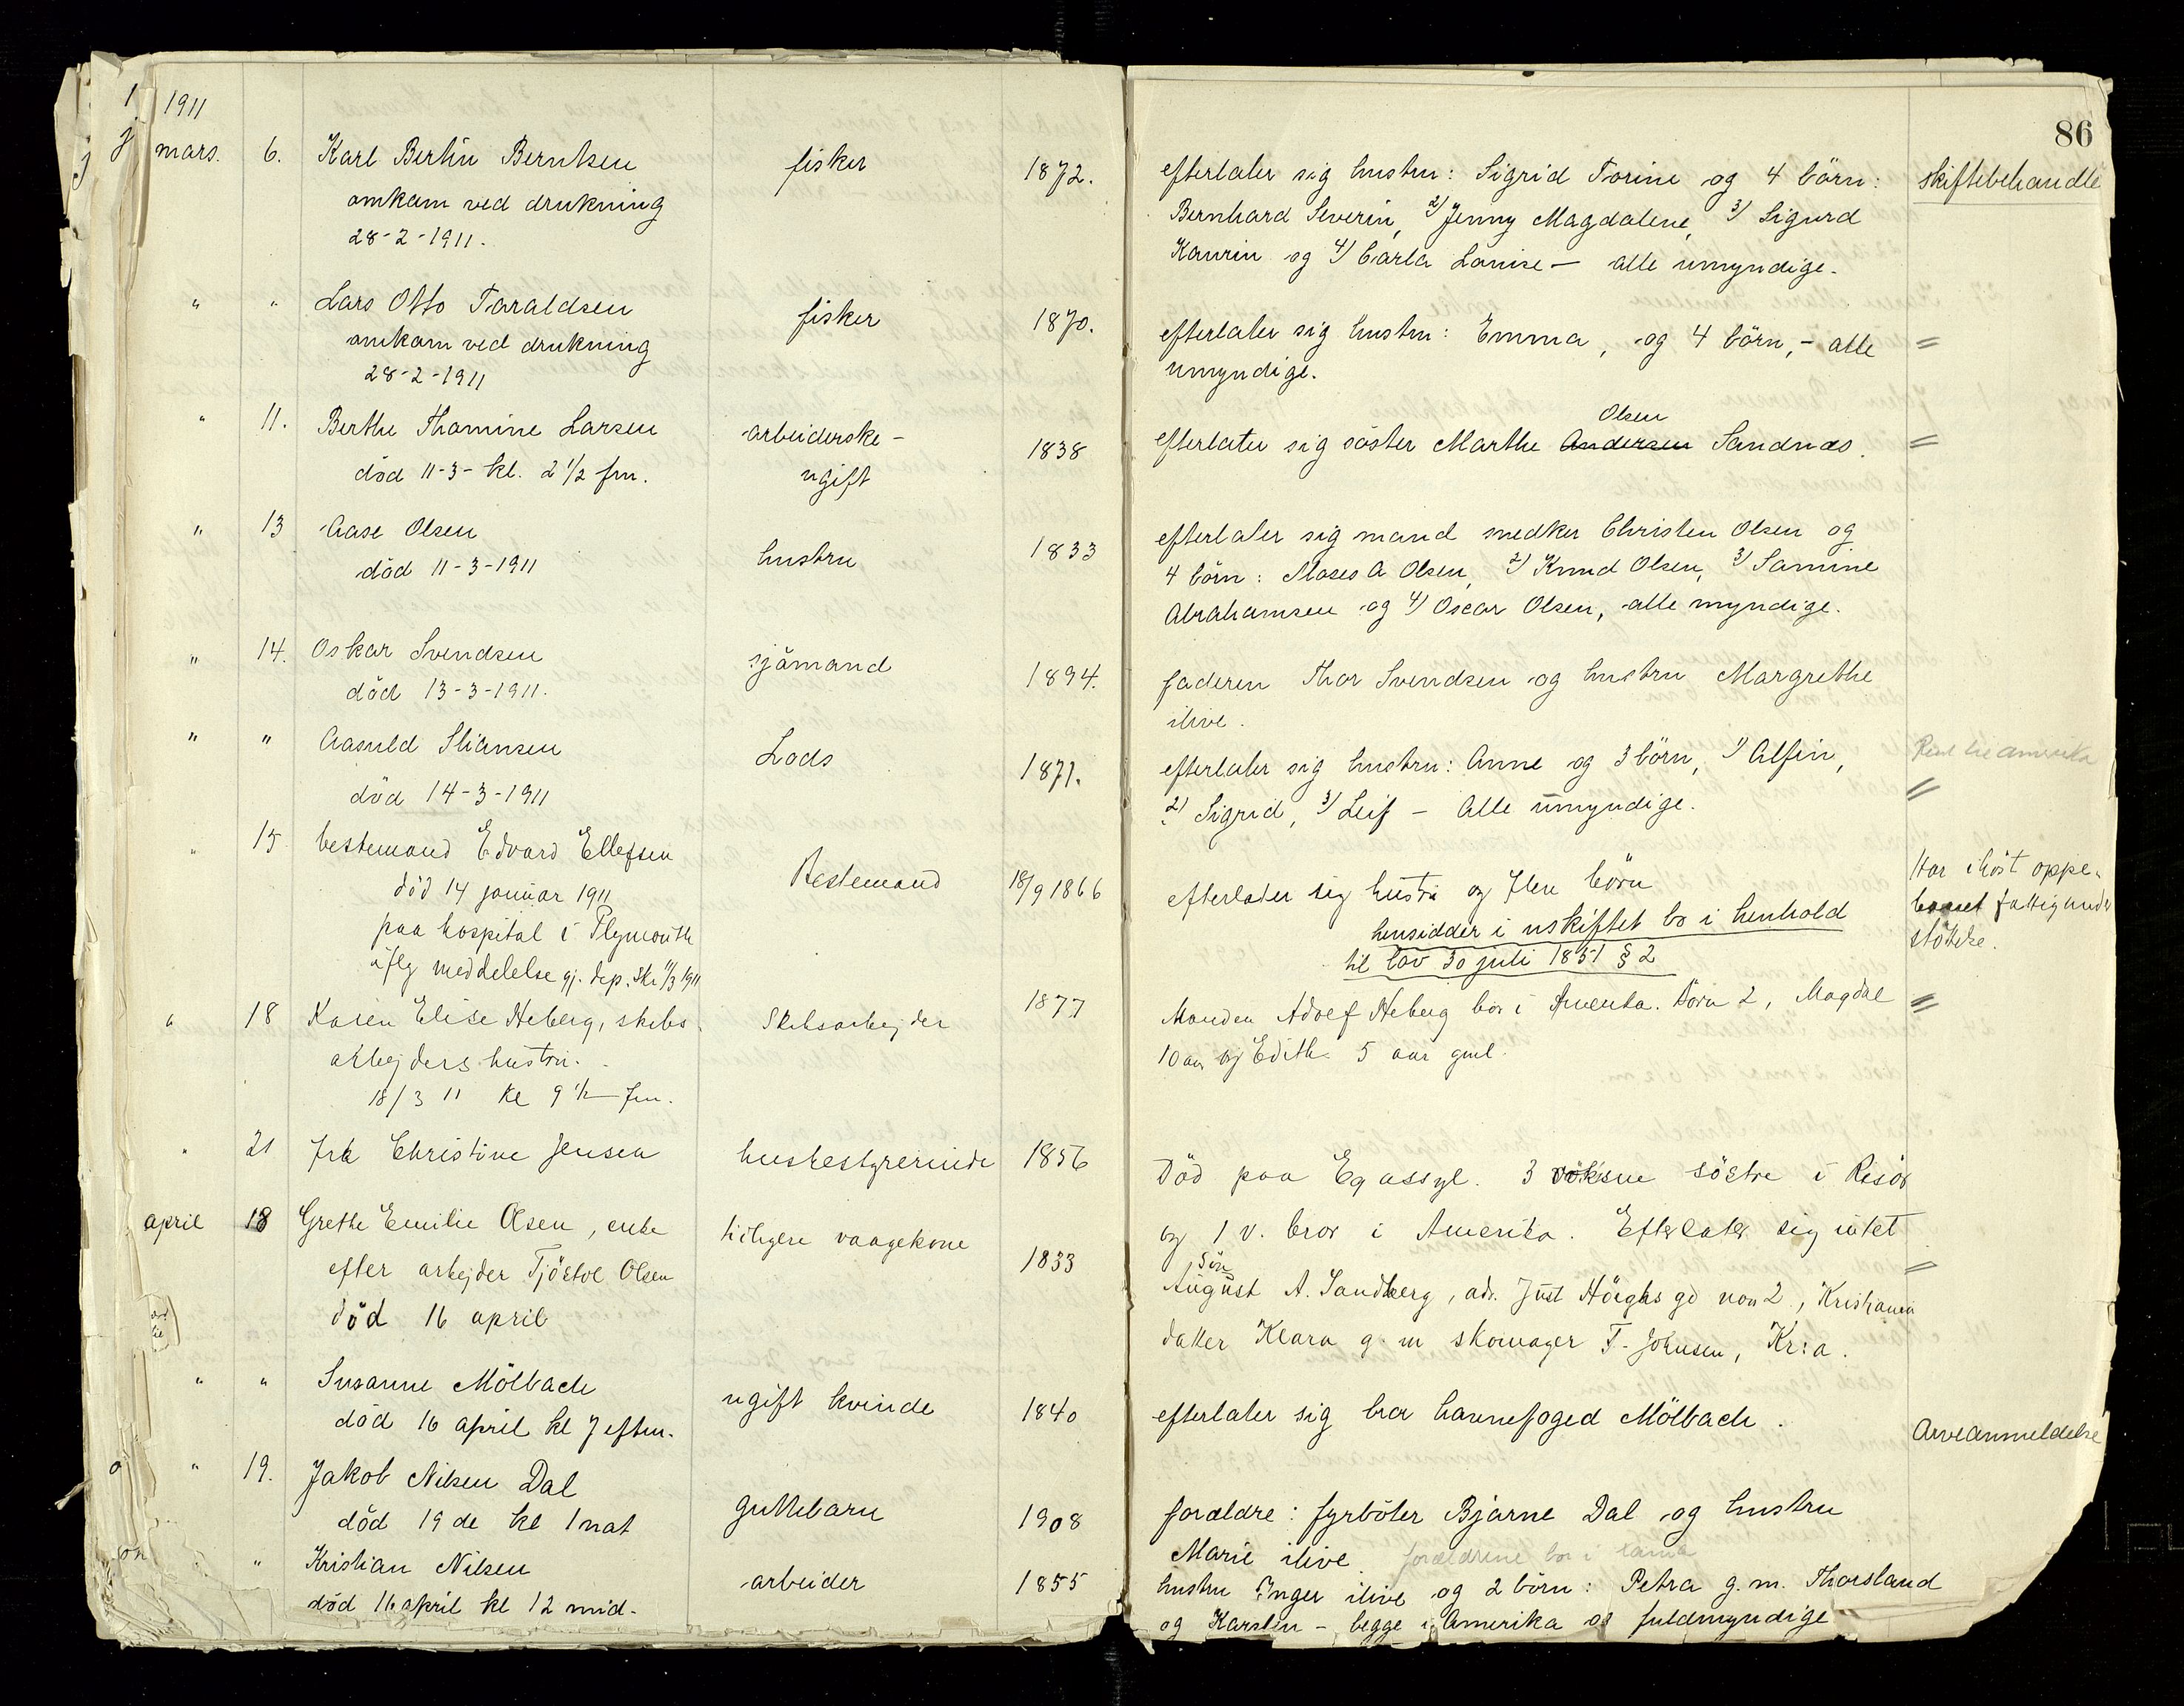 86
1911
mars. 6. Karl Bertin Berntsen fisker 1872.
omkam ved drukning
28-2-1911.
efterlater sig hustru: Sigrid Torine og 4 börn: skiftebehandle
Bernhard Severin, 2) Jenny Magdalene, 3) Sigurd
Kaurin og 4) Carla Louise — alle umyndige.
" " Lars Otto Taraldsen fisker 1870.
omkam ved drukning
28-2-1911
efterlater sig hustru: Emma, og 4 börn, - alle =
umyndige.
" 11. Berthe Thomine Larsen arbeiderske - 1838
död 11-3- kl. 2 1/2 fm. ugift
Olsen
efterlater sig söster Marthe Andersen Sandnæs. =
" 13 Aase Olsen hustru 1833
död 11-3-1911
efterlater sig mand snedker Christen Olsen og
4 börn: Moses A Olsen, 2) Knud Olsen, 3) Samine
Abrahamsen og 4) Oscar Olsen, alle myndige.
" 14. Oskar Svendsen sjömand 1894.
död 13-3-1911.
faderen Thor Svendsen og hustru Margrethe
ilive.
" " Aasuld Stiansen Lods 1871.
död 14-3-1911
efterlater sig hustru: Anne og 3 börn, 1) Alfin,
2) Sigrid, 3) Leif - Alle umyndige. =
" 15 bestemand Edvard Ellefsen Bestemand 18/9 1866
död 14 januar 1911
paa hospital i Plymouth
iflg meddelelse gj. dep. skr 11/3 1911
efterlader sig hustru og flere börn
hensidder i uskiftet bo i henhold
til lov 30 juli 1851 § 2
Har i höst oppe-
baaret fattigunder
stöttelse.
" 18 Karen Elise Heberg, skibs Skibsarbejder 1877
arbejders hustru.
18/3 11 Kl 9 1/2 Fm.
Manden Adolf Heberg bor i Amerika. Börn 2, Magdal =
10 aar og Edith 5 aar gml.
" 21 Frk Christine Jensen husbestyrerinde 1856
Död paa Eg assyl. 3 voksne söstre i Risör
og 1 v. bror i Amerika. Efterlater sig intet
april 18 Grethe Emilie Olsen, enke tidligere vaagekone 1833
efter arbejder Tjöstol Olsen
död 16 april
Sön =
August A. Sandberg, adr. Just Höeghs gd non 2, Kristiania
datter Klara g. m skomager T. Johnsen, Kr:a.
" " Susanne Mölbach ugift kvinde 1840
död 16 april kl 7 eftm.
efterlater sig bror havnefoged Mölbach. Arveanmeldelse
" 19. Jakob Nilsen Dal guttebarn 1908
död 19 de kl 1 nat
forældre: fyrböter Bjarne Dal og hustru
Marie ilive. forældrene bor i
" Kristian Nilsen arbeider 1855
död 16 april kl 12 mid.
hustru Inger ilive og 2 börn: Petra g. m. Thorsland
og Karsten - begge i Amerika og fuldmyndige